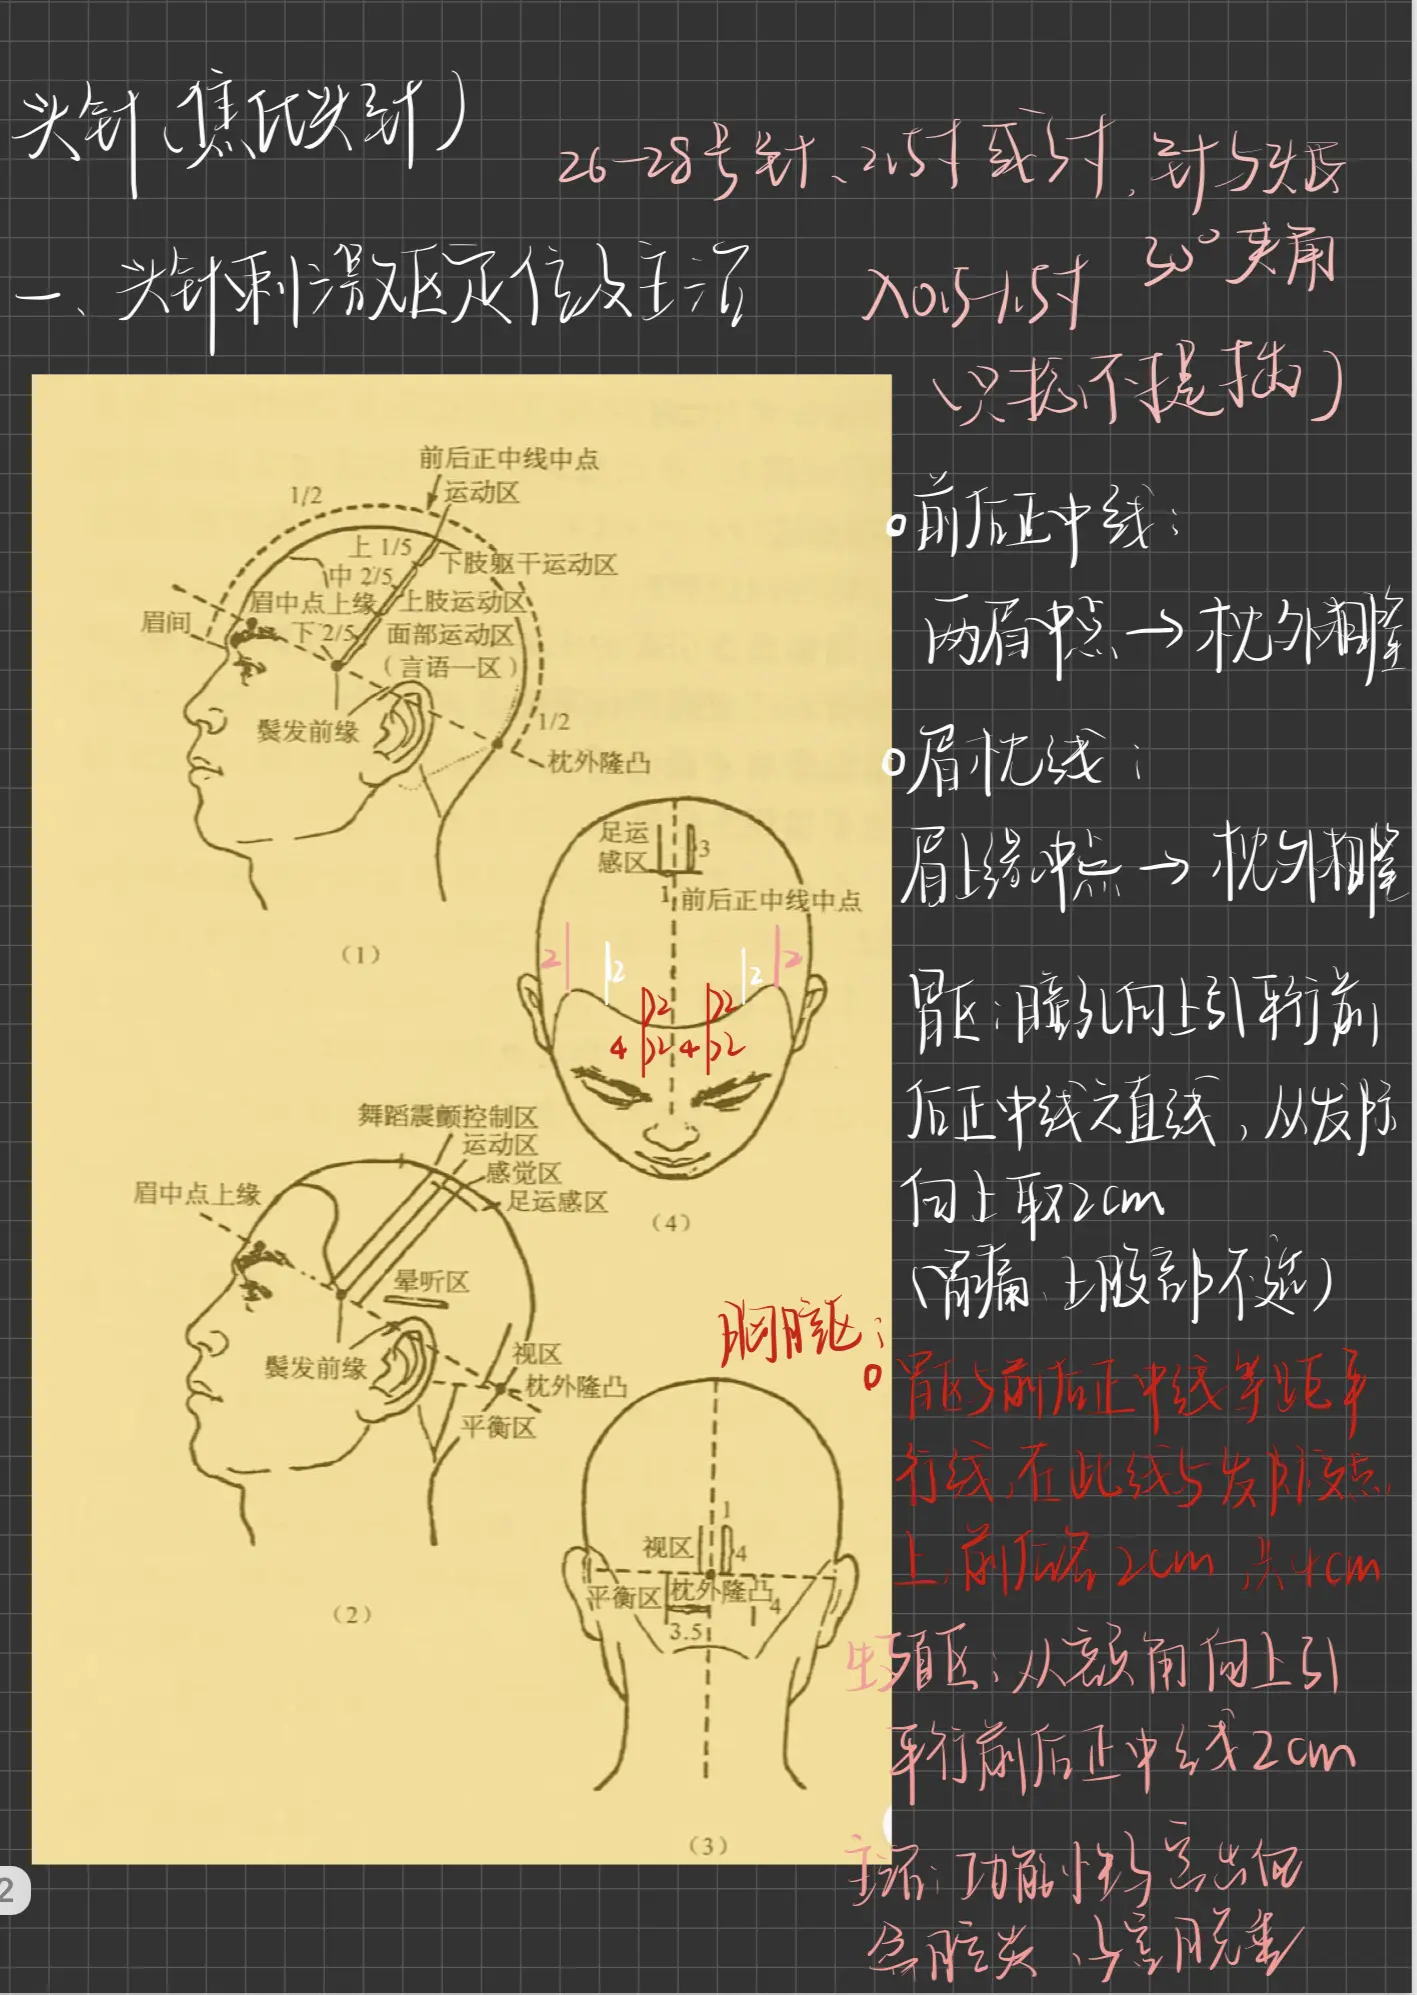 头针(焦氏头针)
26-28号针、2.5寸或3寸,针与头皮
30°夹角
入0.5-1.5寸
(只捻不提插)
一、头针刺激区定位及主治
前后正中线中点
1/2
运动区
上 1/5
下肢躯干运动区
中 2/5
眉中点上缘
上肢运动区
眉间
下 2/5
面部运动区
(言语一区)
鬓发前缘
1/2
枕外隆凸
(1)
足运
感区
3
1
前后正中线中点
2
2
2
2
2
2
4
2
4
2
(4)
舞蹈震颤控制区
运动区
感觉区
足运感区
眉中点上缘
晕听区
视区
鬓发前缘
枕外隆凸
平衡区
(2)
1
视区
4
平衡区
枕外隆凸
4
3.5
(3)
前后正中线:
两眉中点→枕外粗隆
眉枕线:
眉上缘中点→枕外粗隆
胃区:瞳孔向上引平行前
后正中线之直线,从发际
向上取2cm
(胃痛、上腹部不适)
胸腔区:
胃区与前后正中线等距平
行线,在此线与发际交点
上,前后各2cm 共4cm
生殖区:从额角向上引
平行前后正中线2cm
主治:功能性子宫出血
盆腔炎、子宫脱垂
2